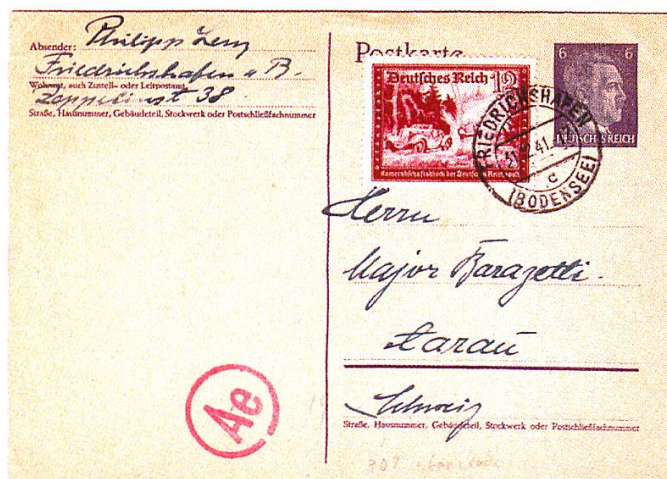 Absender: Philipp Lenz
Friedrichshafen a B.
Wohnort, auch Zustell- oder Leitpostamt
Zeppelinst 38
Straße, Hausnummer, Gebäudeteil, Stockwerk oder Postschließfachnummer
Postkarte
6 6
DEUTSCHES REICH
Deutsches Reich
Kameradschaftsblock der Deutschen Reichspost
FRIEDRICHSHAFEN
41
c
(BODENSEE)
Herrn
Major Barazetti.
Aarau
Schweiz
Straße, Hausnummer, Gebäudeteil, Stockwerk oder Postschließfachnummer
Ae